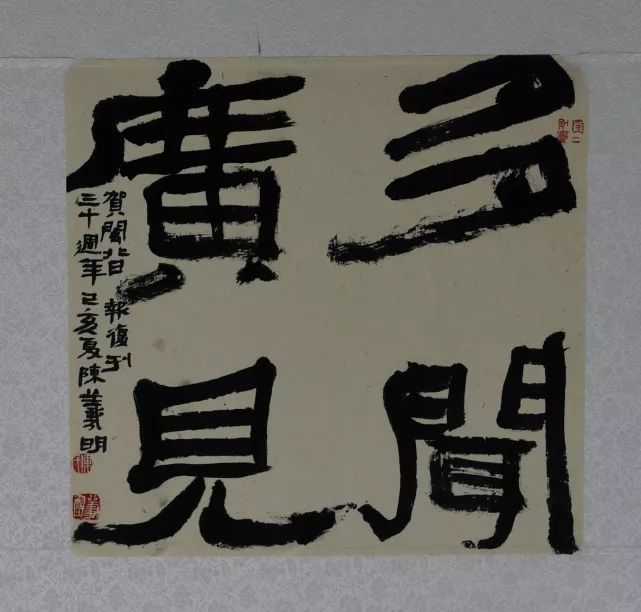 多聞
廣見
賀閩北日報復刊
三十週年己亥夏陳羲明